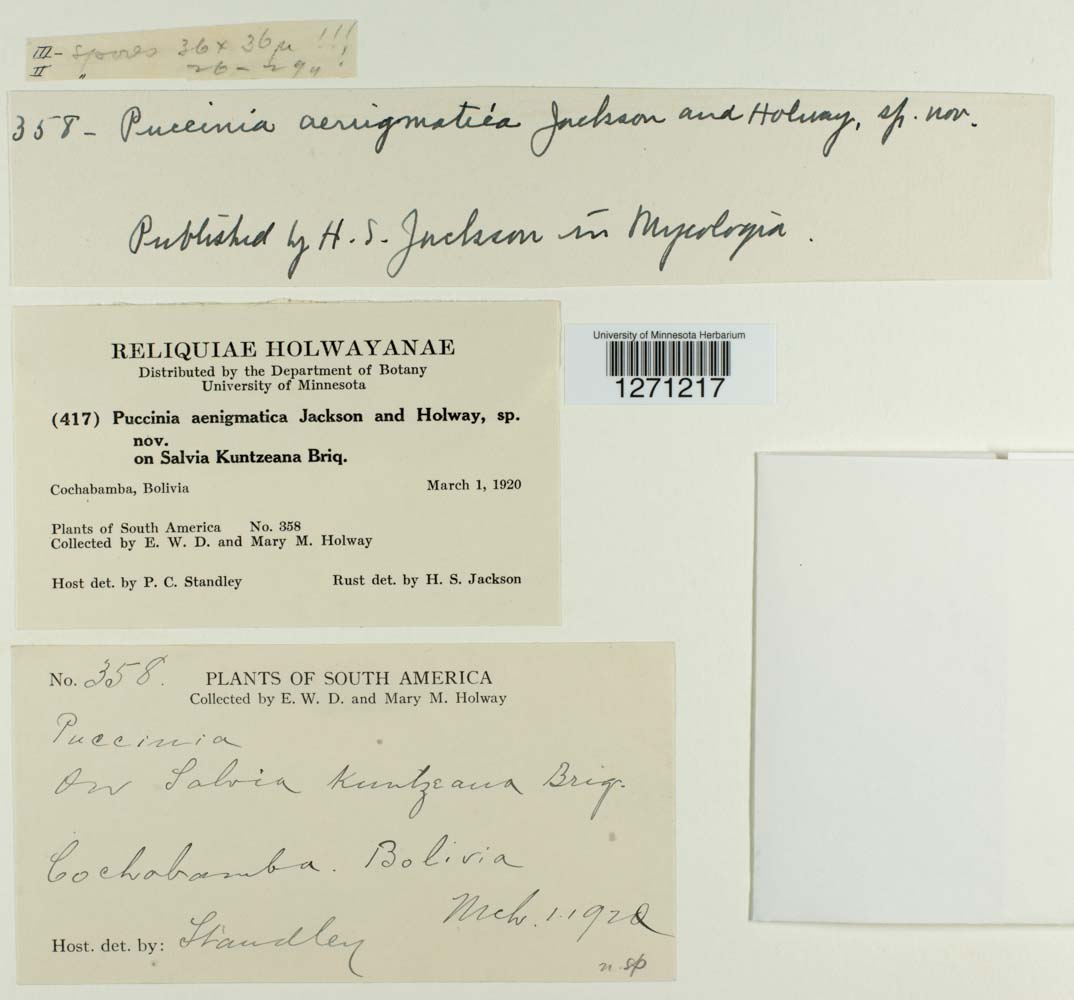 III - spores 36 x 36 µ !!!
II " 26 - 29 µ !
358 - Puccinia aenigmatica Jackson and Holway, sp. nov.
Published by H. S. Jackson in Mycologia.
RELIQUIAE HOLWAYANAE
Distributed by the Department of Botany
University of Minnesota
(417) Puccinia aenigmatica Jackson and Holway, sp.
nov.
on Salvia Kuntzeana Briq.
Cochabamba, Bolivia March 1, 1920
Plants of South America No. 358
Collected by E. W. D. and Mary M. Holway
Host det. by P. C. Standley Rust det. by H. S. Jackson
University of Minnesota Herbarium
1271217
No. 358. PLANTS OF SOUTH AMERICA
Collected by E. W. D. and Mary M. Holway
Puccinia
On Salvia Kuntzeana Briq.
Cochabamba. Bolivia
Mch. 1. 1920
Host. det. by: Standley
n. sp